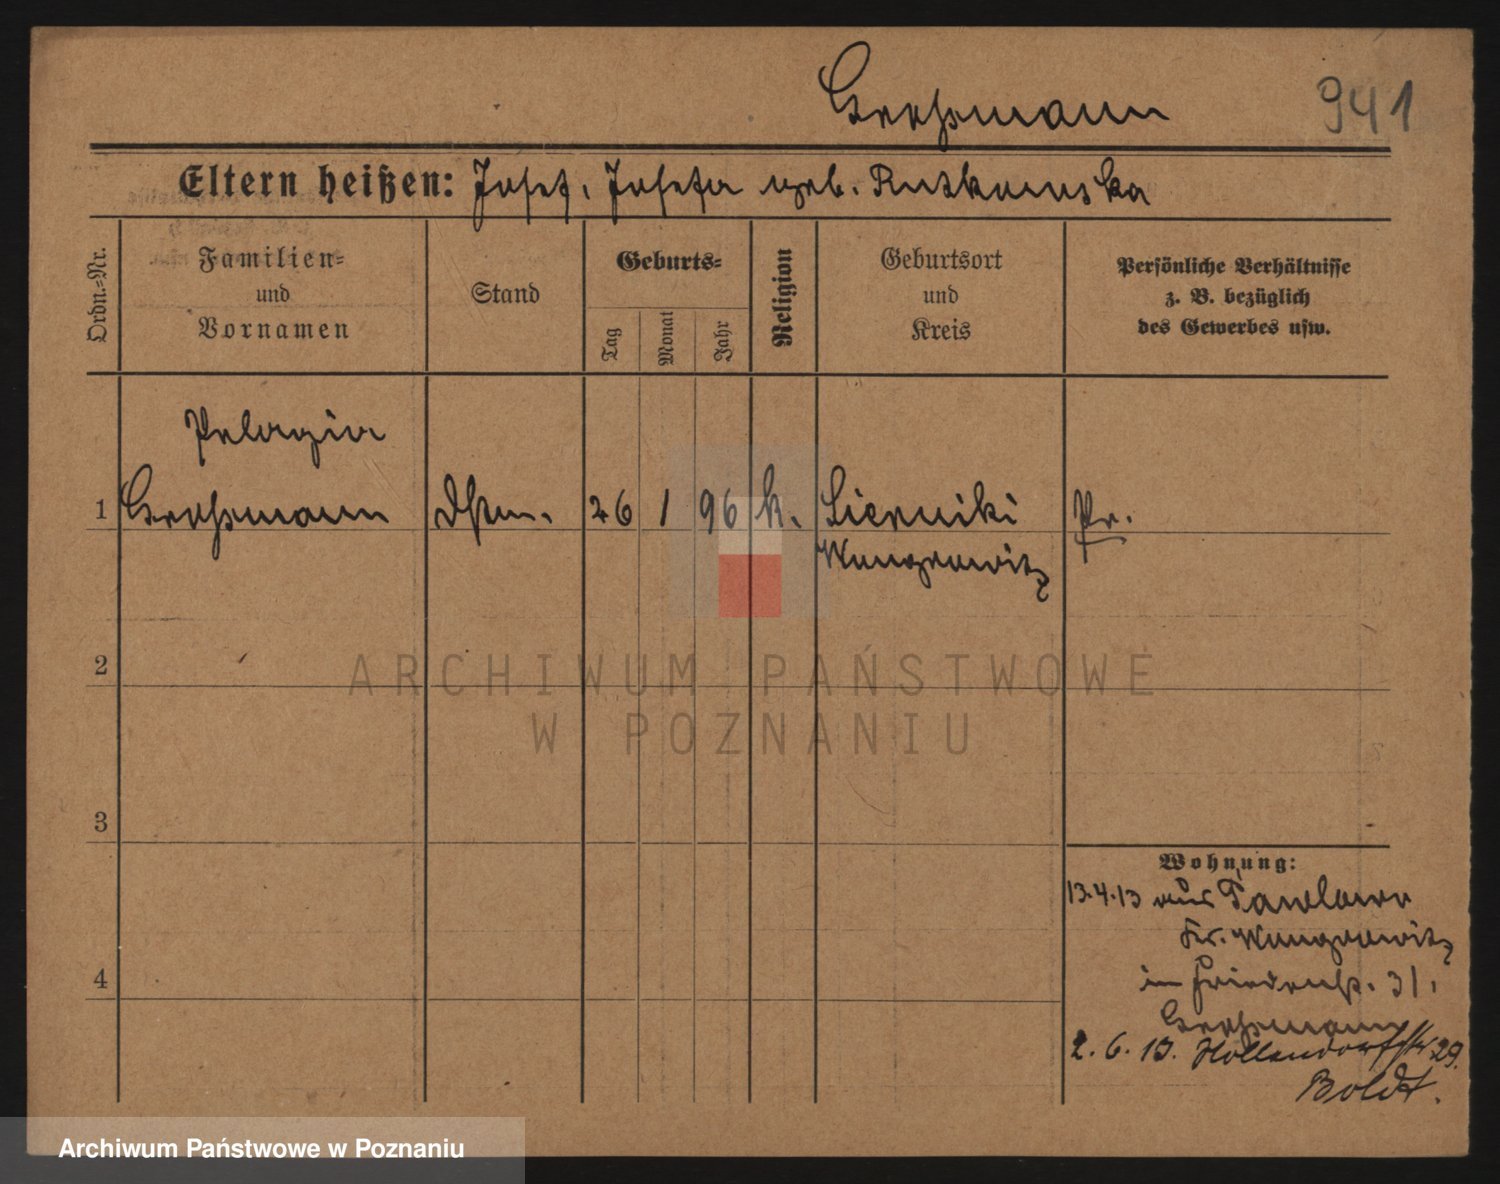 Großmann
941
Eltern heißen: Josef, Josefa geb. Rutkowska
Ordn.=Nr.
Familien=
und
Vornamen
Stand
Geburts=
Tag
Monat
Jahr
Religion
Geburtsort
und
Kreis
Persönliche Verhältnisse
z. B. bezüglich
des Gewerbes usw.
Pelagia
1 Großmann 26 1 96 k. Sierniki Pr.
Wongrowitz
2
3
4
Wohnung:
13.4.13 aus Pawlowo
Kr. Wongrowitz
in Friedenstr. 31.
Großmann
2. 6. 13. Hollendorffstr 29.
Boldt.
ARCHIWUM PAŃSTWOWE
W POZNANIU
Archiwum Państwowe w Poznaniu